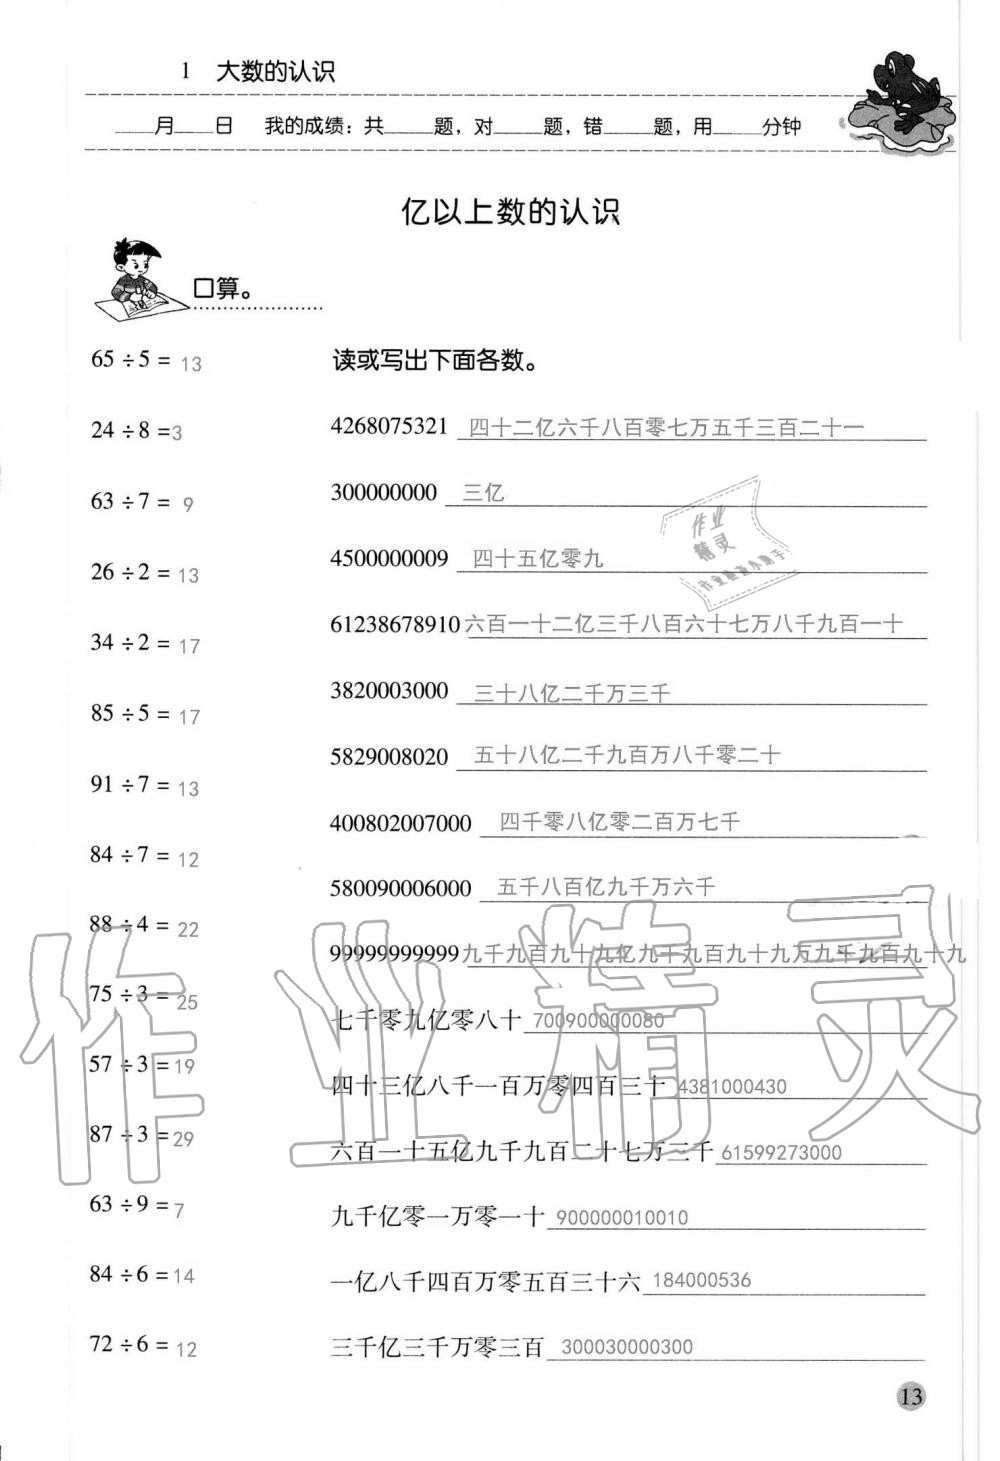 1 大数的认识
____月____日 我的成绩：共____题，对____题，错____题，用____分钟
亿以上数的认识
口算。
65÷5= 13
24÷8=3
63÷7= 9
26÷2= 13
34÷2= 17
85÷5= 17
91÷7= 13
84÷7= 12
88÷4= 22
75÷3= 25
57÷3= 19
87÷3= 29
63÷9= 7
84÷6= 14
72÷6= 12
读或写出下面各数。
4268075321 四十二亿六千八百零七万五千三百二十一
300000000 三亿
4500000009 四十五亿零九
61238678910 六百一十二亿三千八百六十七万八千九百一十
3820003000 三十八亿二千万三千
5829008020 五十八亿二千九百万八千零二十
400802007000 四千零八亿零二百万七千
580090006000 五千八百亿九千万六千
99999999999 九千九百九十九亿九千九百九十九万九千九百九十九
七千零九亿零八十 700900000080
四十三亿八千一百万零四百三十 4381000430
六百一十五亿九千九百二十七万三千 61599273000
九千亿零一万零一十 900000010010
一亿八千四百万零五百三十六 184000536
三千亿三千万零三百 300030000300
作业精灵
作业
精灵
13